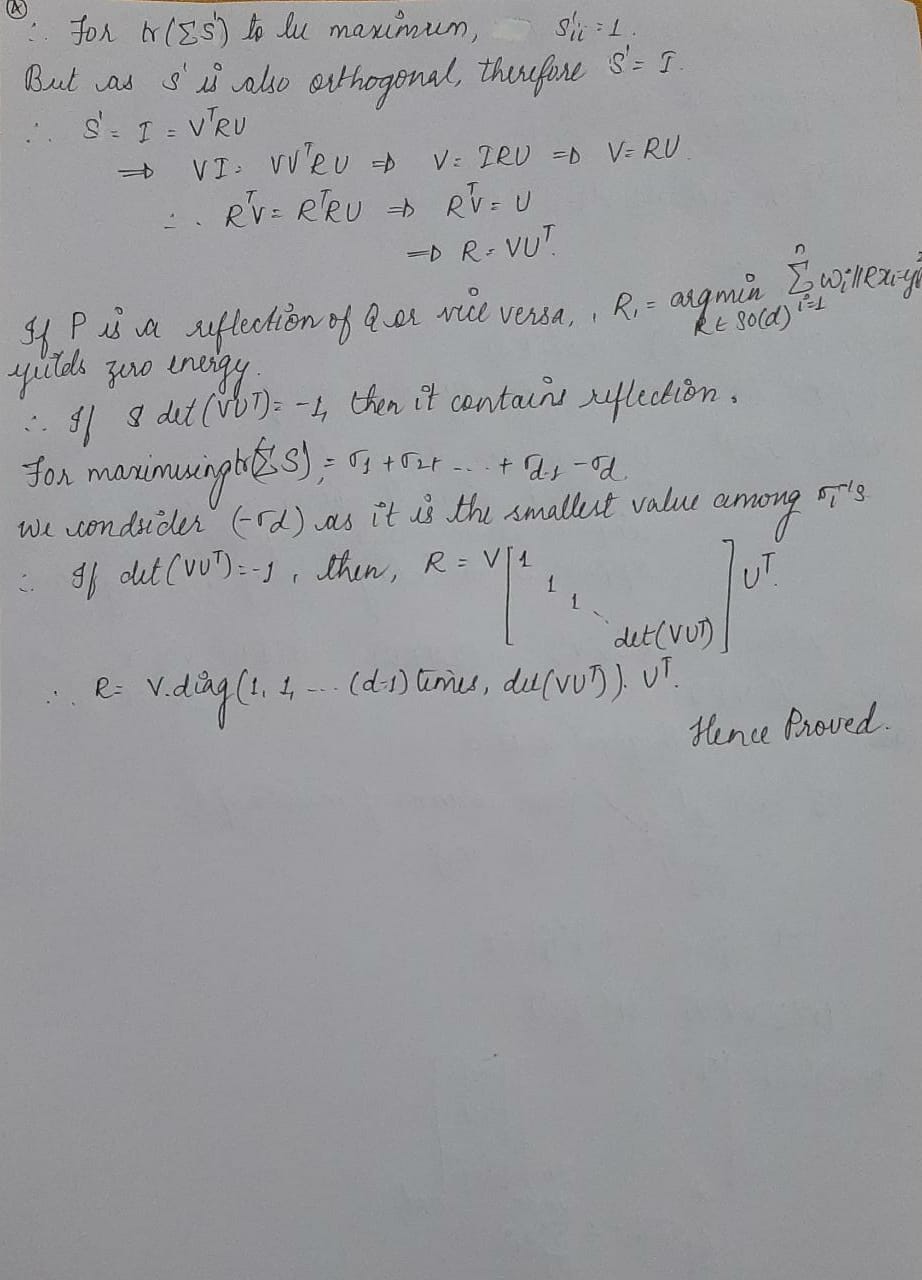 (A)
∴ For tr(ΣS') to be maximum, S'ii = 1.
But as S' is also orthogonal, therefore S' = I.
∴ S' = I = VᵀRU
⇒ VI = VVᵀRU ⇒ V = IRU ⇒ V = RU.
∴ RᵀV = RᵀRU ⇒ RᵀV = U
⇒ R = VUᵀ.
If P is a reflection of Q or vice versa, , R, = argmin R∈SO(d) Σⁿᵢ₌₁ wᵢ||Rxᵢ-yᵢ
yields zero energy.
∴ If det(VUᵀ) = -1, then it contains reflection.
For maximising tr(ΣS), = σ1 + σ2 + ... + σd-1 - σd
we condsider (-σd) as it is the smallest value among σi's
∴ If det(VUᵀ) = -1, then, R = V [1 1 1 ⋱ det(VUᵀ)] Uᵀ.
∴ R = V.diag(1, 1, ... (d-1) times, det(VUᵀ)). Uᵀ.
Hence Proved.